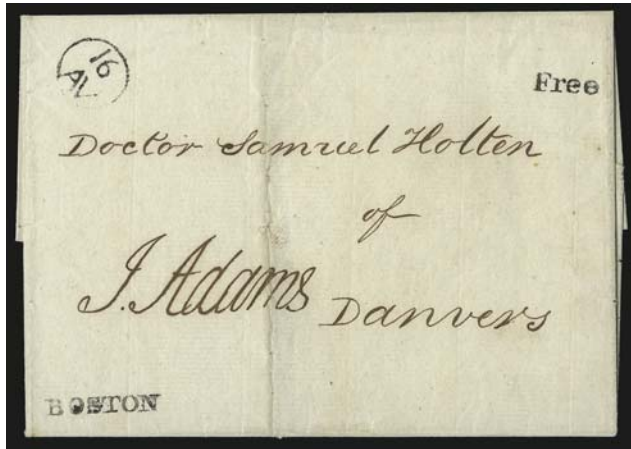 16
AV
Free
Doctor Samuel Holten
of
J. Adams Danvers
BOSTON